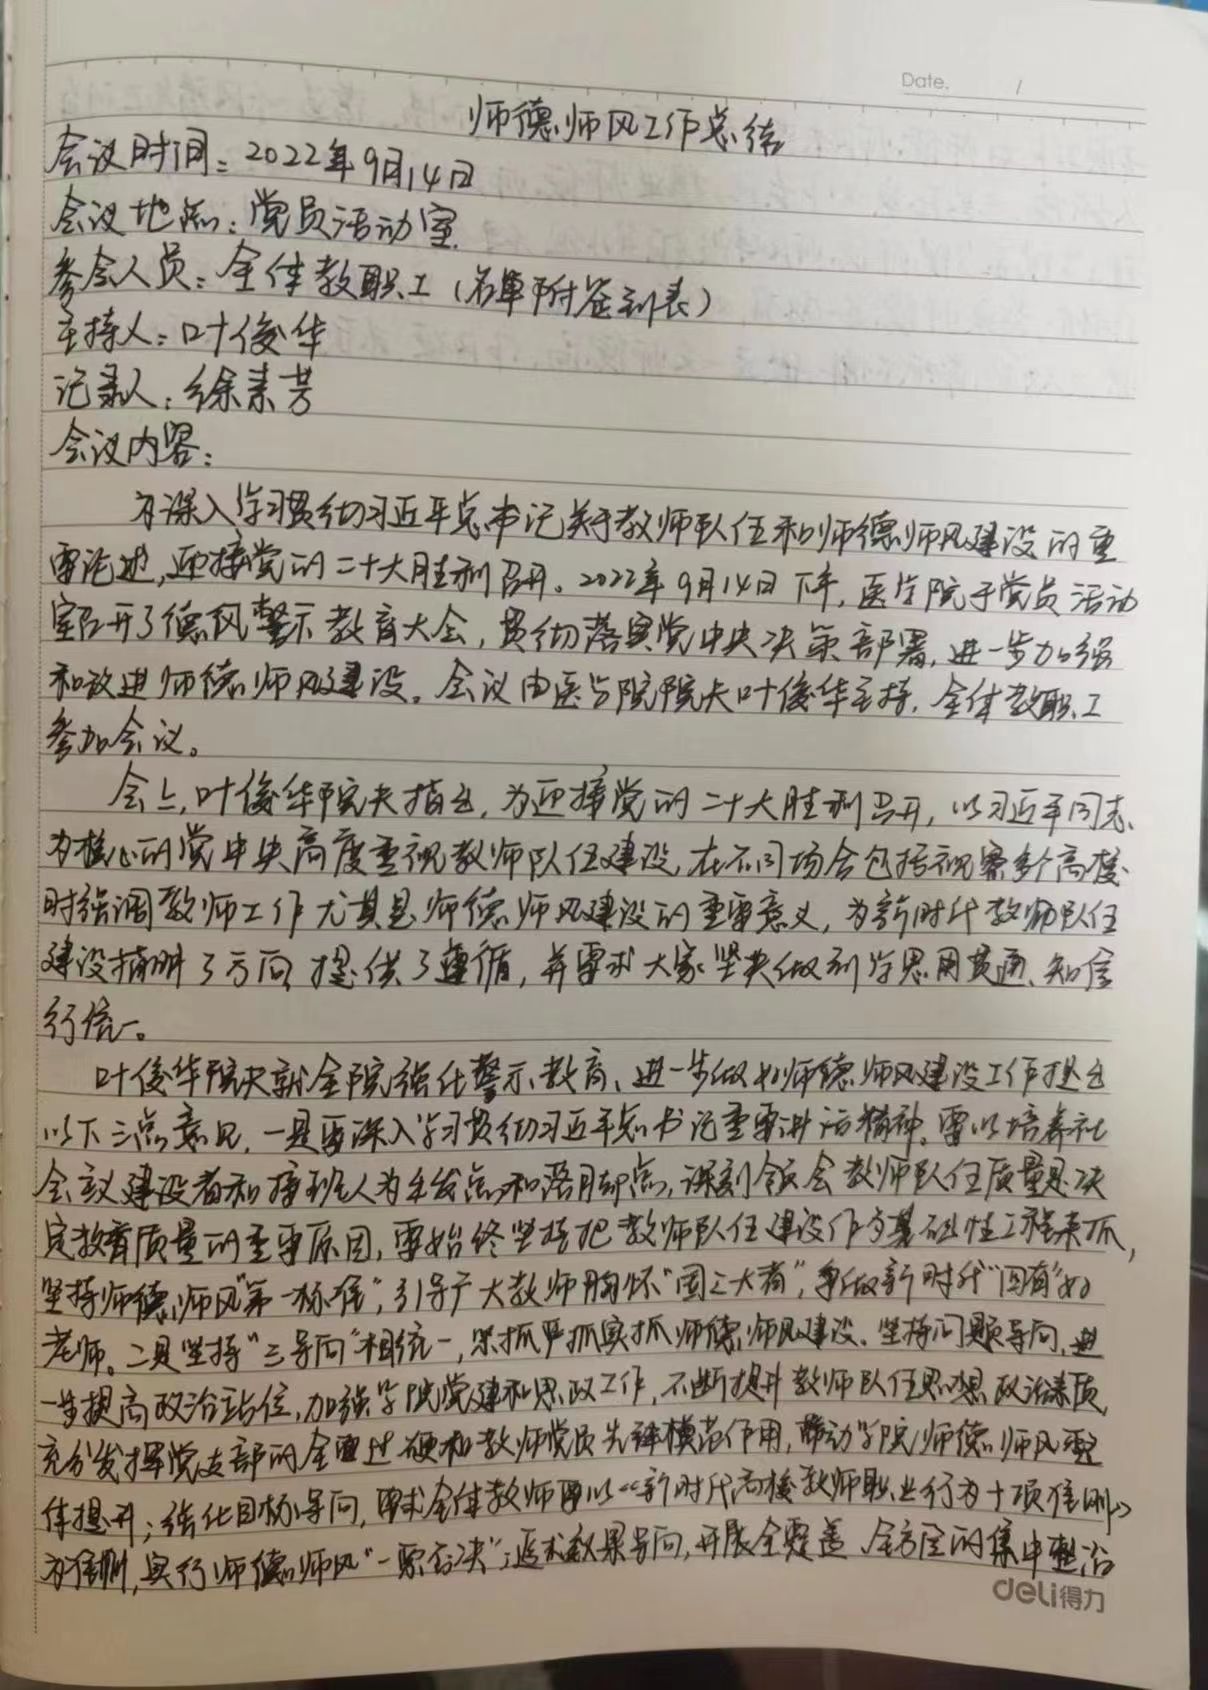 Date. /
师德师风工作总结
会议时间：2022年9月14日
会议地点：党员活动室
参会人员：全体教职工（名单附签到表）
主持人：叶俊华
记录人：徐素芳
会议内容：
为深入学习贯彻习近平总书记关于教师队伍和师德师风建设的重
要论述，迎接党的二十大胜利召开。2022年9月14日下午，医学院于党员活动
室召开了德风警示教育大会，贯彻落实党中央决策部署，进一步加强
和改进师德师风建设。会议由医学院院长叶俊华主持，全体教职工
参加会议。
会上，叶俊华院长指出，为迎接党的二十大胜利召开，以习近平同志
为核心的党中央高度重视教师队伍建设，在不同场合包括视察多个高校
时强调教师工作尤其是师德师风建设的重要意义，为新时代教师队伍
建设指明了方向，提供了遵循，并要求大家坚决做到学思用贯通、知信
行统一。
叶俊华院长就全院强化警示教育、进一步做好师德师风建设工作提出
以下三点意见，一是要深入学习贯彻习近平总书记重要讲话精神。要以培养社
会主义建设者和接班人为出发点和落脚点，深刻领会教师队伍质量是决
定教育质量的重要原因，要始终坚持把教师队伍建设作为基础性工程来抓，
坚持师德师风“第一标准”，引导广大教师胸怀“国之大者”，争做新时代“四有”好
老师。二是坚持“三导向”相统一，紧抓严抓实抓师德师风建设。坚持问题导向，进
一步提高政治站位，加强学院党建和思政工作，不断提升教师队伍思想政治素质，
充分发挥党支部的全面过硬和教师党员先锋模范作用，带动学院师德师风整
体提升；强化目标导向，要求全体教师要以《新时代高校教师职业行为十项准则》
为准则，实行师德师风“一票否决”；追求效果导向，开展全覆盖、全方位的集中整治
deli得力